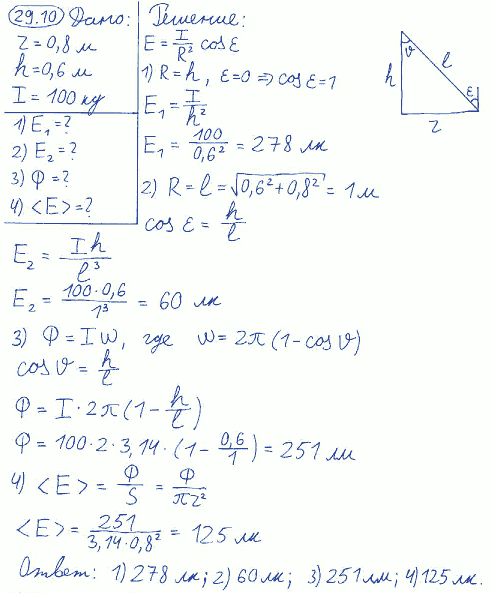 29.10 Дано:
r = 0,8 м
h = 0,6 м
I = 100 кд
1) E₁ = ?
2) E₂ = ?
3) Φ = ?
4) <E> = ?
Решение:
E = I/R² cos ε
1) R = h, ε = 0 ⇒ cos ε = 1
E₁ = I/h²
E₁ = 100/0,6² = 278 лк
2) R = l = √(0,6² + 0,8²) = 1 м
cos ε = h/l
h
ϑ
l
ε
r
E₂ = Ih/l³
E₂ = 100·0,6/1³ = 60 лк
3) Φ = I w, где w = 2π (1 - cos ϑ)
cos ϑ = h/l
Φ = I · 2π (1 - h/l)
Φ = 100 · 2 · 3,14 · (1 - 0,6/1) = 251 лм
4) <E> = Φ/S = Φ/πr²
<E> = 251/3,14·0,8² = 125 лк
Ответ: 1) 278 лк; 2) 60 лк; 3) 251 лм; 4) 125 лк.